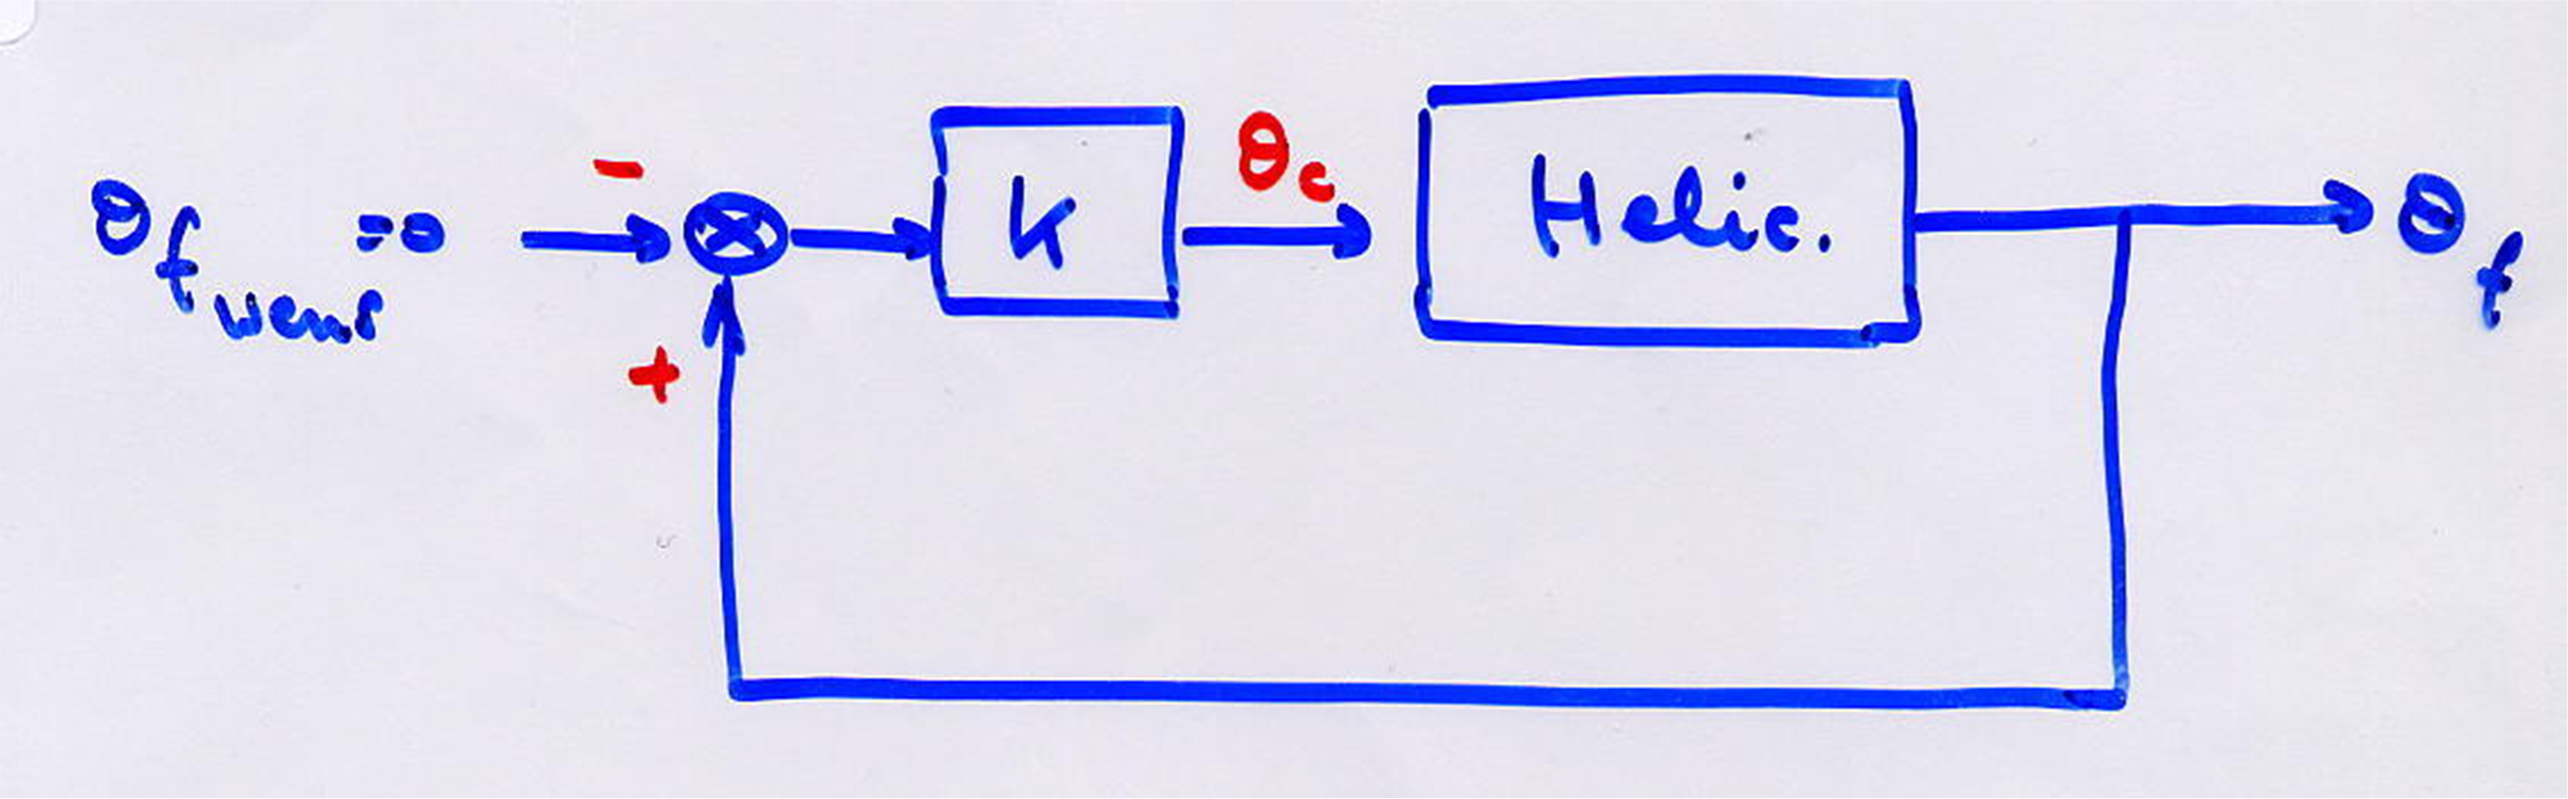 θf wens =0
-
+
K
θc
Helic.
θf